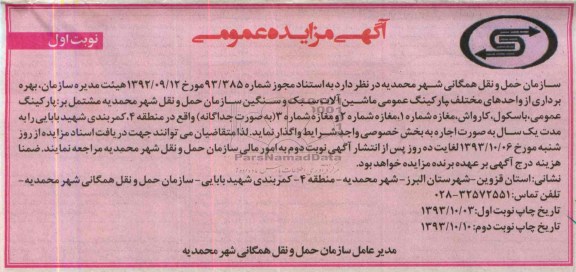 آگهی مزایده عمومی
نوبت اول
سازمان حمل و نقل همگانی شهر محمدیه در نظر دارد به استناد مجوز شماره ۹۳/۳۸۵ مورخ ۱۳۹۲/۰۹/۱۲ هیئت مدیره سازمان، بهره
برداری از واحدهای مختلف پارکینگ عمومی ماشین آلات سبک و سنگین سازمان حمل و نقل شهر محمدیه مشتمل بر: پارکینگ
عمومی، باسکول، کارواش، مغازه شماره ۱، مغازه شماره ۲ و مغازه شماره ۳ (به صورت جداگانه) واقع در منطقه ۴، کمربندی شهید بابایی را به
مدت یک سال به صورت اجاره به بخش خصوصی واجد شرایط واگذار نماید. لذا متقاضیان می توانند جهت دریافت اسناد مزایده از روز
شنبه مورخ ۱۳۹۳/۱۰/۰۶ لغایت ده روز پس از انتشار آگهی نوبت دوم به امور مالی سازمان حمل و نقل شهر محمدیه مراجعه نمایند. ضمنا
هزینه درج آگهی بر عهده برنده مزایده خواهد بود.
نشانی: استان قزوین - شهرستان البرز - شهر محمدیه - منطقه ۴ - کمربندی شهید بابایی - سازمان حمل و نقل همگانی شهر محمدیه -
تلفن تماس: ۳۲۵۷۲۵۵۱-۰۲۸
تاریخ چاپ نوبت اول: ۱۳۹۳/۱۰/۰۳
تاریخ چاپ نوبت دوم: ۱۳۹۳/۱۰/۱۰
مدیر عامل سازمان حمل و نقل همگانی شهر محمدیه
ParsNamadData